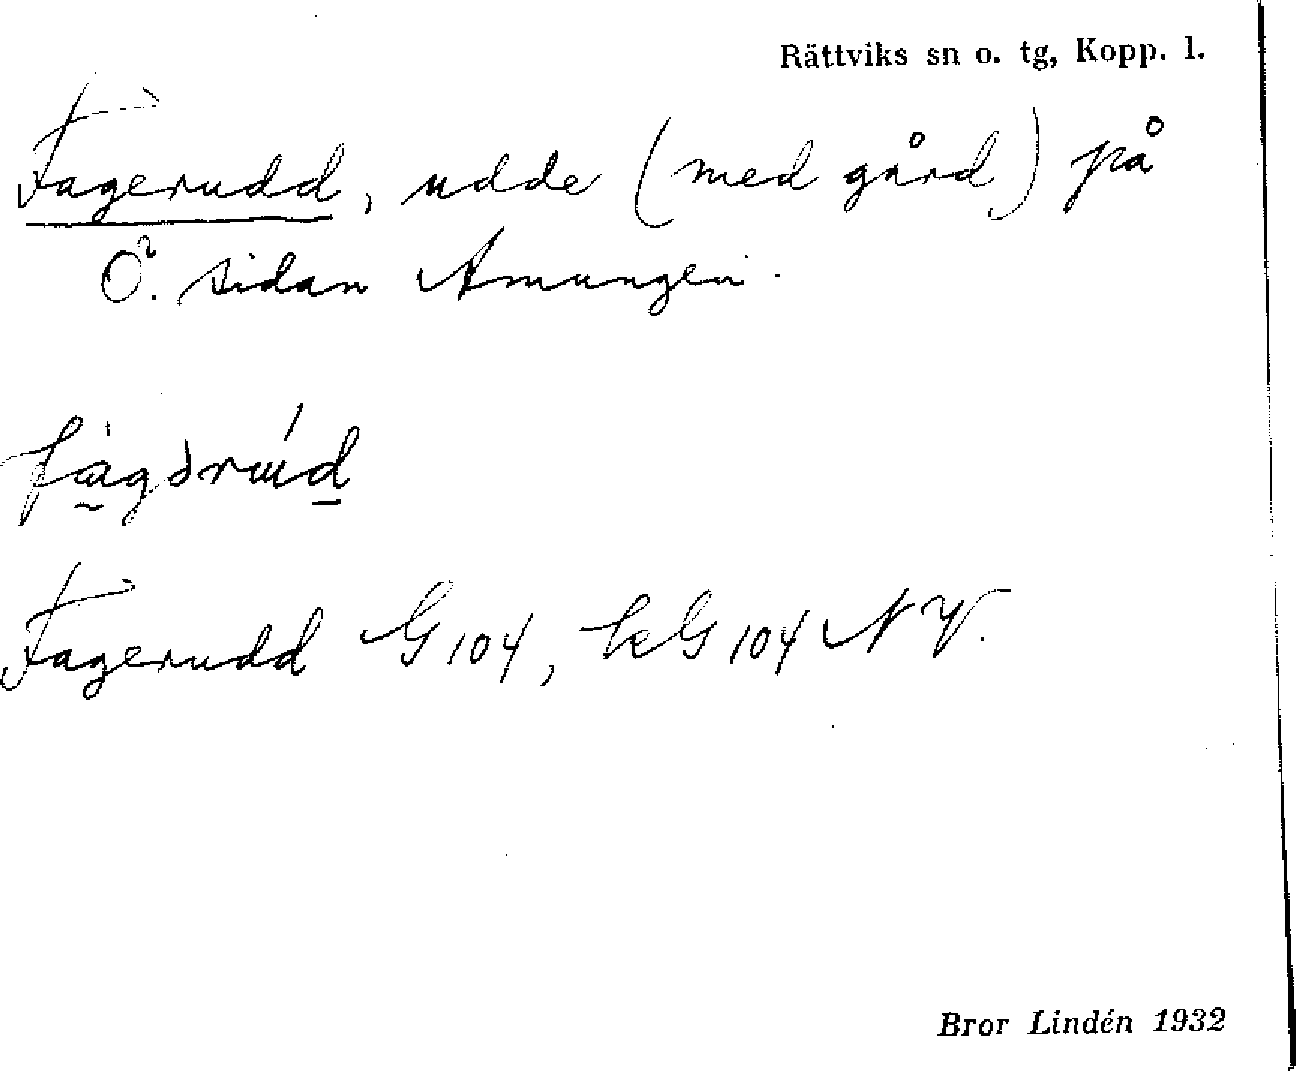 Rättviks sn o. tg, Kopp. l.
Fagerudd, udde (med gård) på
Ö. sidan Amungen.
Fagerudd G 104, kG 104 NV.
Bror Lindén 1932